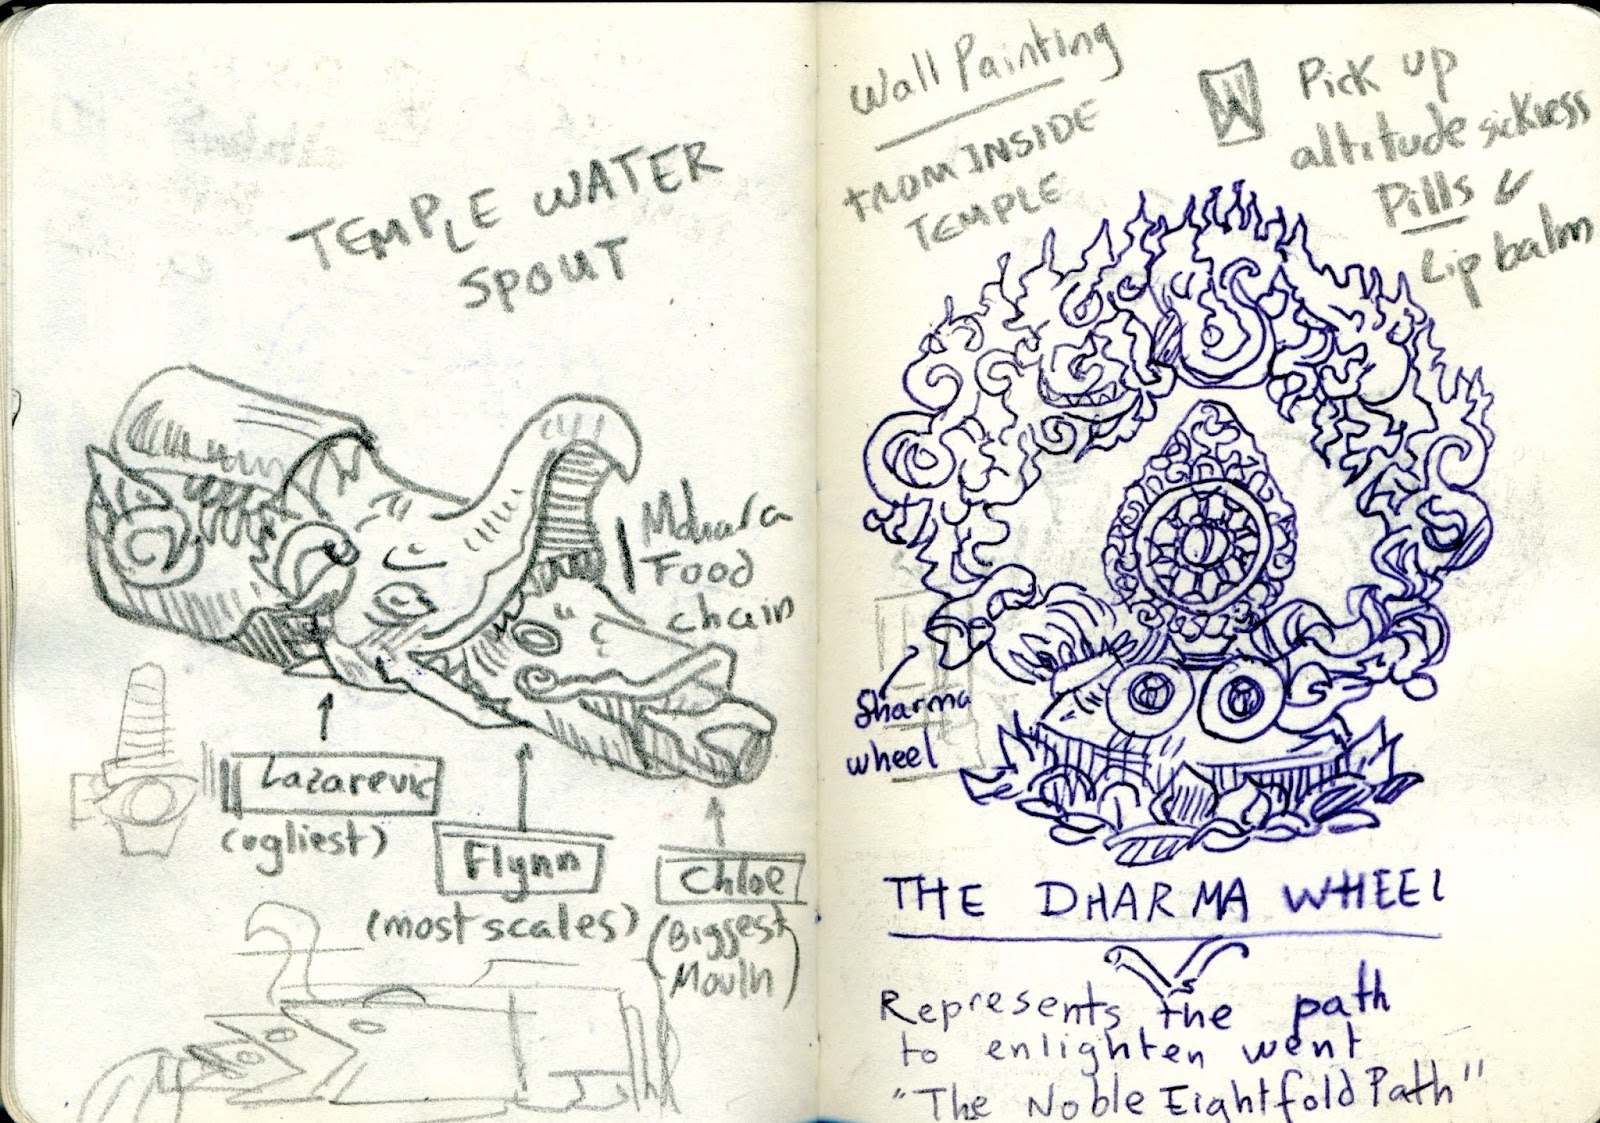 TEMPLE WATER
SPOUT
Food
chain
Lazarevic
(ugliest)
Flynn
(most scales)
Chloe
(Biggest
Mouth)
Wall Painting
FROM INSIDE
TEMPLE
Pick up
altitude sickness
Pills
Lip balm
dharma
wheel
THE DHARMA WHEEL
Represents the path
to enlighten went
"The Noble Eightfold Path"